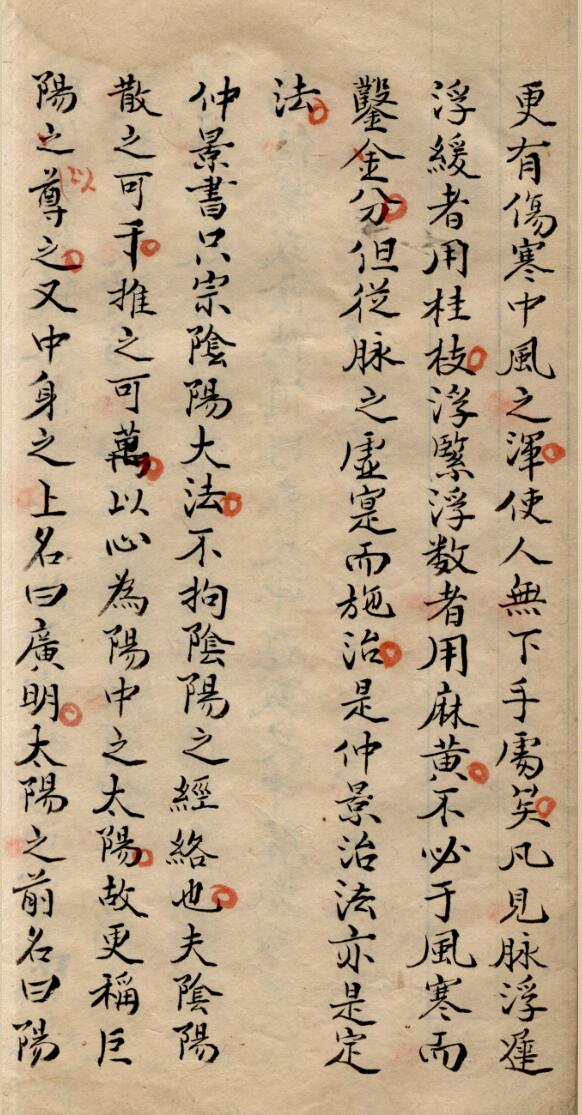 更有傷寒中風之渾使人無下手處矣凡見脉浮遲
浮緩者用桂枝浮緊浮数者用麻黄不必于風寒而
鑿金分但從脉之虛寔而施治是仲景治法亦是定
法
仲景書只宗陰陽大法不拘陰陽之經絡也夫陰陽
散之可千推之可萬以心為陽中之太陽故更稱巨
陽之尊之又中身之上名曰廣明太陽之前名曰陽
以